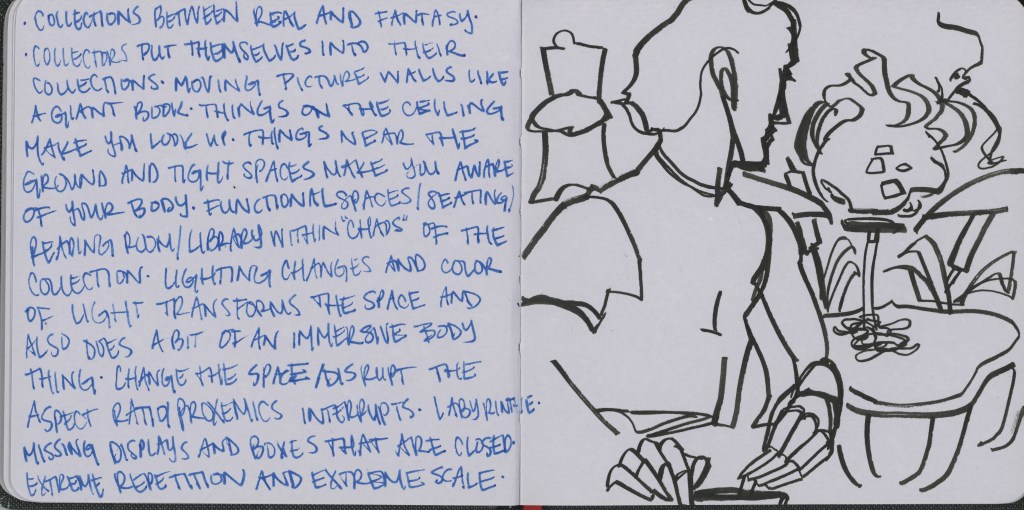 · COLLECTIONS BETWEEN REAL AND FANTASY ·
· COLLECTORS PUT THEMSELVES INTO THEIR
COLLECTIONS · MOVING PICTURE WALLS LIKE
A GIANT BOOK · THINGS ON THE CEILING
MAKE YOU LOOK UP · THINGS NEAR THE
GROUND AND TIGHT SPACES MAKE YOU AWARE
OF YOUR BODY · FUNCTIONAL SPACES/SEATING/
READING ROOM/LIBRARY WITHIN "CHAOS" OF THE
COLLECTION · LIGHTING CHANGES AND COLOR
OF LIGHT TRANSFORMS THE SPACE AND
ALSO DOES A BIT OF AN IMMERSIVE BODY
THING · CHANGE THE SPACE/DISRUPT THE
ASPECT RATIO/PROXEMICS INTERRUPTS · LABYRINTHE ·
MISSING DISPLAYS AND BOXES THAT ARE CLOSED ·
EXTREME REPETITION AND EXTREME SCALE ·